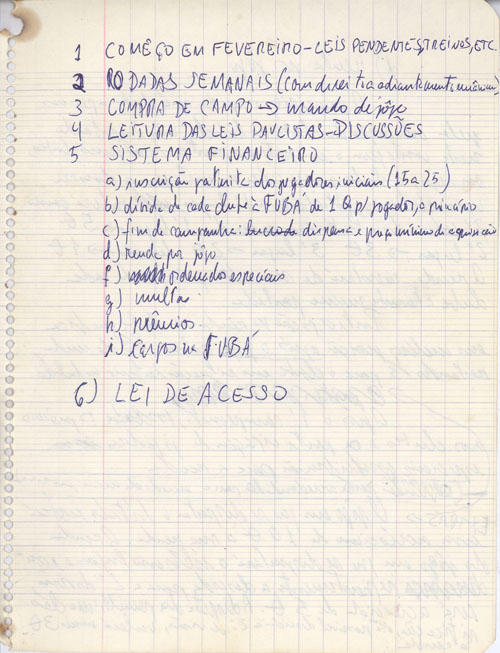 1 COMÊÇO EM FEVEREIRO-LEIS PENDENTES, TREINOS, ETC.
2 RODADAS SEMANAIS (com direito a adiantamento
3 COMPRA DE CAMPO → mando de jôgo
4 LEITURA DAS LEIS PAULISTAS-DISCUSSÕES
5 SISTEMA FINANCEIRO
a) inscrição gratuita dos jogadores iniciais (15 a 25)
b) dívida de cada clube à FUBÁ de 1 p/ jogador, a princípio
c) fim de campanha: dispensa e preço mínimo de aquisição
d) renda por jôgo
f) ordenados especiais
g) multas
h) prêmios.
i) cargos na FUBÁ
6) LEI DE ACESSO